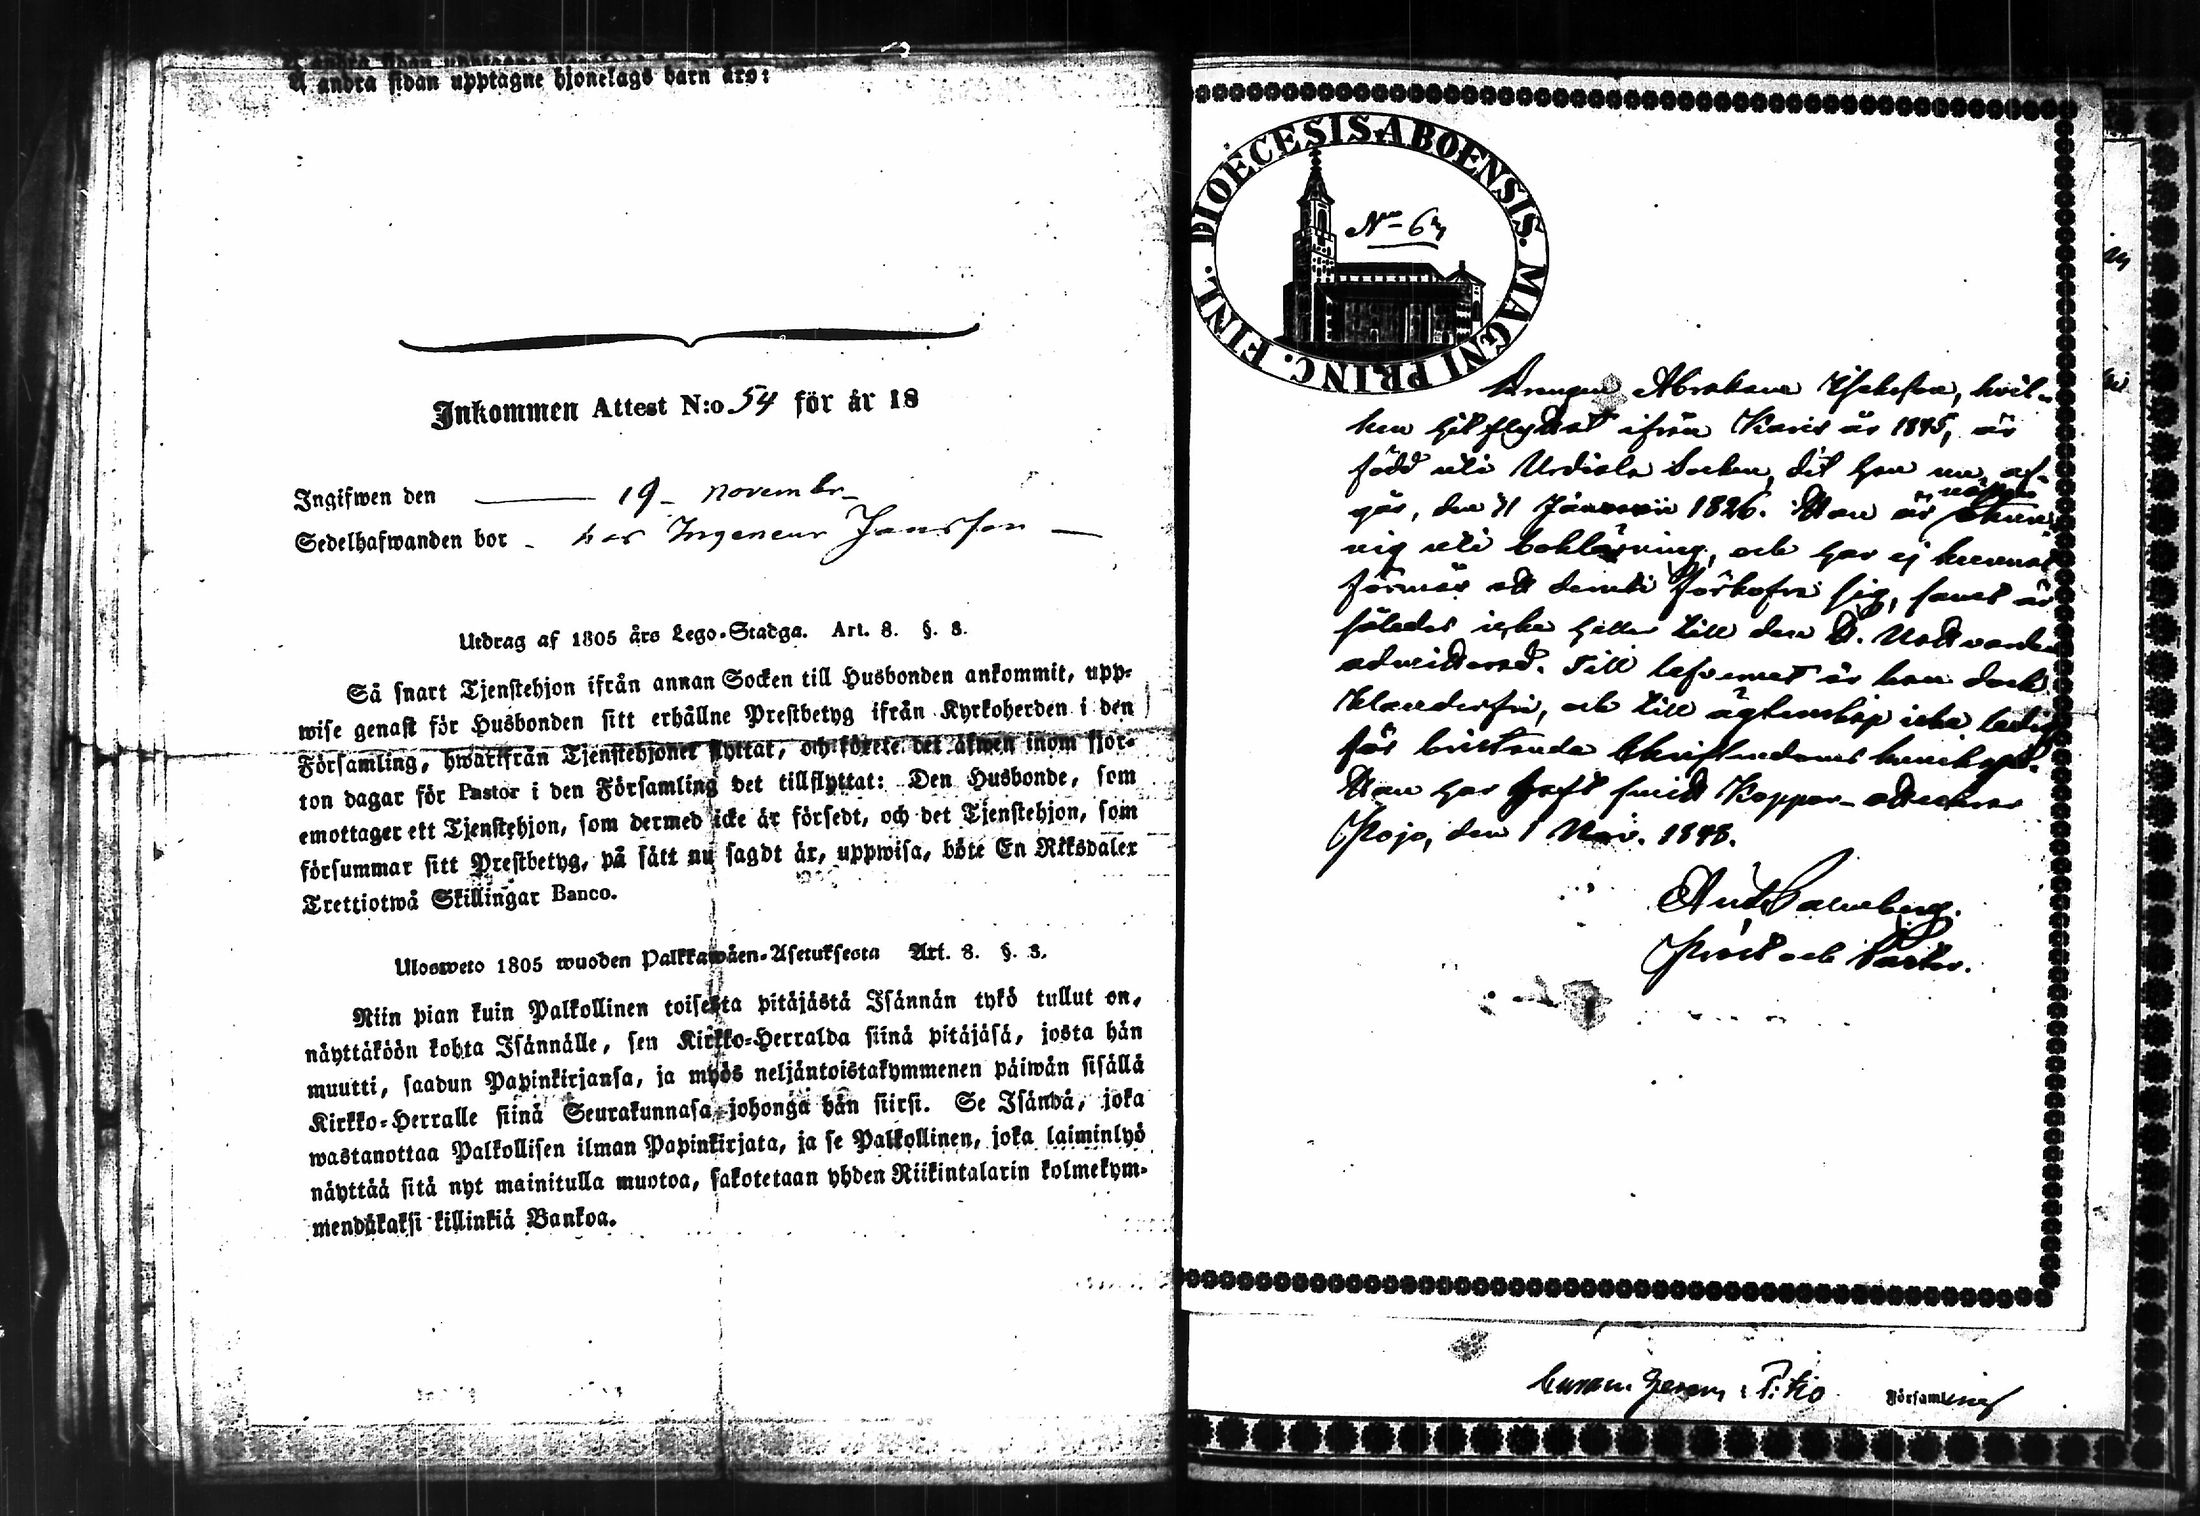 å andra sidan upptagne hjonelags barn äro:
Inkommen Attest N:o 54 för år 18
Ingifwen den 19 novembr
Sedelhafwanden bor hos Ingeneur Jansson
Utdrag af 1805 års Lego-Stadga. Art. 8. §. 3.
Så snart Tjenstehjon ifrån annan Socken till Husbonden ankommit, upp-
wise genast för Husbonden sitt erhållne Prestbetyg ifrån Kyrkoherden i den
Församling, hwarifrån Tjenstehjonet flyttat, och förete det äfwen inom fjor-
ton dagar för Pastor i den Församling det tillflyttat: Den Husbonde, som
emottager ett Tjenstehjon, som dermed icke är försedt, och det Tjenstehjon, som
försummar sitt Prestbetyg, på sätt nu sagdt är, uppwisa, böte En Riksdaler
Trettiotwå Skillingar Banco.
Ulosweto 1805 wuoden Palkkawäen-Asetuksesta Art. 8. §. 3.
Niin pian kuin Palkollinen toisesta pitäjästä Isännän tykö tullut on,
näyttäköön kohta Isännälle, sen Kirkko-Herralda siinä pitäjäsä, josta hän
muutti, saadun Papinkirjansa, ja myös neljäntoistakymmenen päiwän sisällä
Kirkko-Herralle siinä Seurakunnasa johonga hän siirsi. Se Isändä, joka
wastanottaa Palkollisen ilman Papinkirjata, ja se Palkollinen, joka laiminlyö
näyttää sitä nyt mainitulla muotoa, sakotetaan yhden Riikintalarin kolmekym-
mendäkaksi killinkiä Bankoa.
DIOECESIS ABOENSIS. MAGNI PRINC. FINL.
Drengen Abraham Esaksson, hvil-
ken hitflyttat ifrån Karis år 1845, är
född uti Urdiala Socken, dit han nu af-
går, den 21 Januarii 1826. Han är någon
uti boklärning, och har ej kunnat
förmås att deruti förkofra sig, samt är
således icke heller till den H. Nattvarden
admitterad. Till lefvernet är han dock
klanderfri, och till ägtenskap icke ledig
för bristande Christendoms kunskap.
Han har haft smitt Koppor, attesterar
Pojo, den 1 Nov. 1848.
Prost och Pastor.
Församling